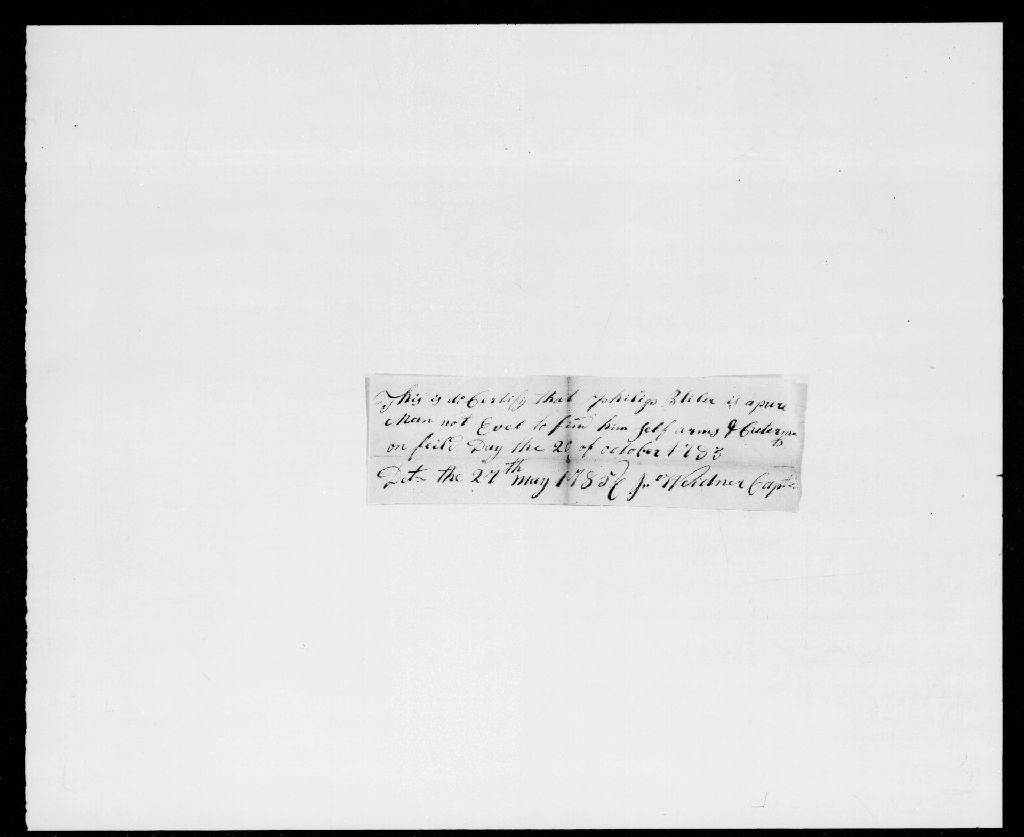 This is to Certify that philip is a pure
Man not Evel to fim him self arms & Cuterm
on feild Day the 20 of october 1783
Dct the 27th may 1785 Jno Weidner Capt